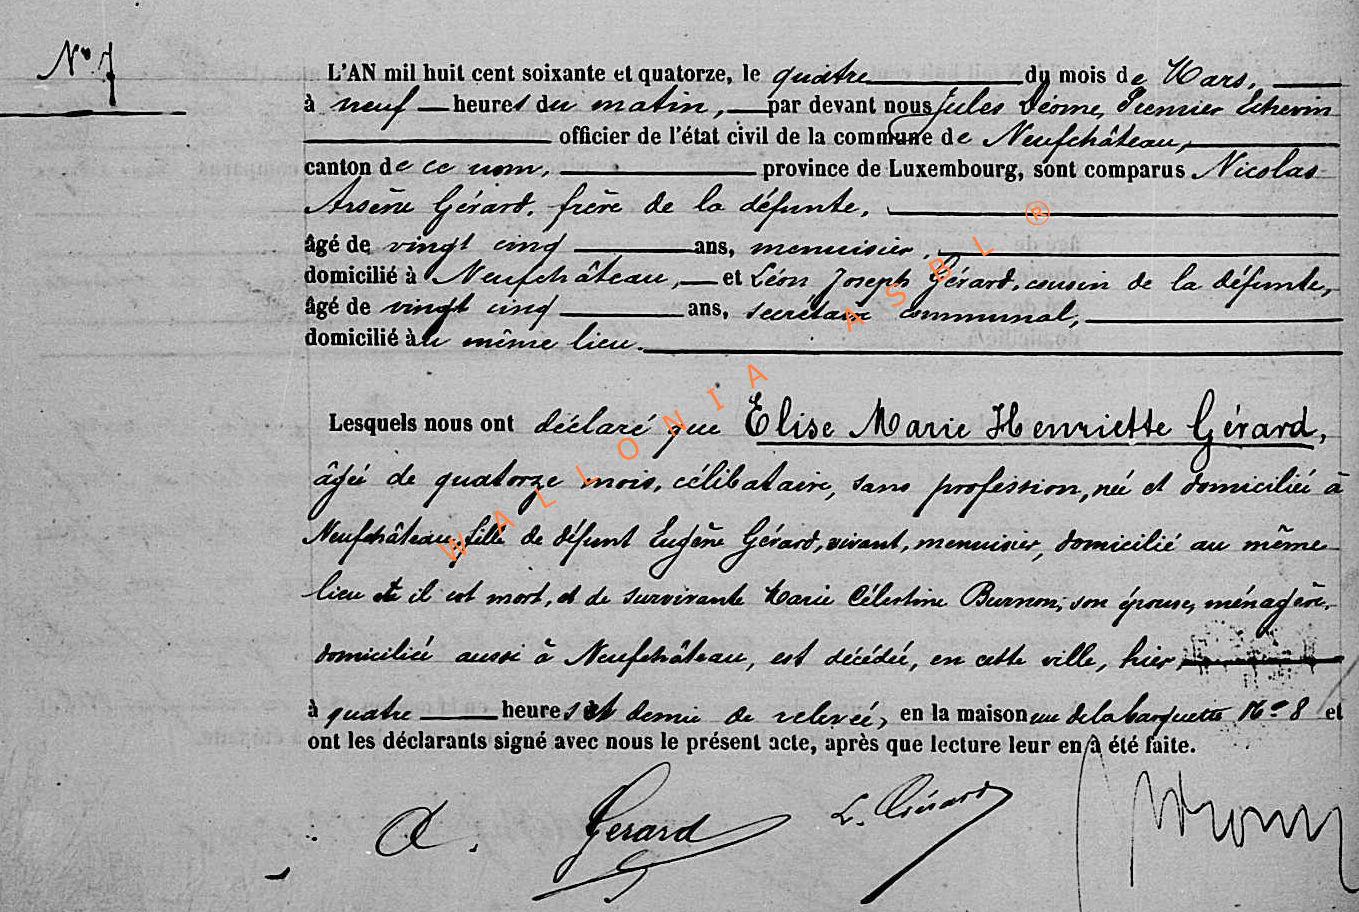 N° 7
L'AN mil huit cent soixante et quatorze, le quatre du mois de Mars,
à neuf heures du matin, par devant nous Jules Déome, Premier Echevin
officier de l'état civil de la commune de Neufchâteau,
canton de ce nom, province de Luxembourg, sont comparus Nicolas
Arsène Gérard, frère de la défunte,
âgé de vingt cinq ans, menuisier,
domicilié à Neufchâteau, et Léon Joseph Gérard, cousin de la défunte,
âgé de vingt cinq ans, secrétaire communal,
domicilié au même lieu.
Lesquels nous ont déclaré que Elise Marie Henriette Gérard,
âgée de quatorze mois, célibataire, sans profession, née et domiciliée à
Neufchâteau, fille de défunt Eugène Gérard, vivant, menuisier, domicilié au même
lieu où il est mort, et de survivante Marie Célestine Burnon, son épouse, ménagère,
domiciliée aussi à Neufchâteau, est décédée, en cette ville, hier,
à quatre heures et demie de relevée, en la maison rue de la barquette N° 8 et
ont les déclarants signé avec nous le présent acte, après que lecture leur en a été faite.
A. Gerard L. Gérard
WALLONIA ASBL ®